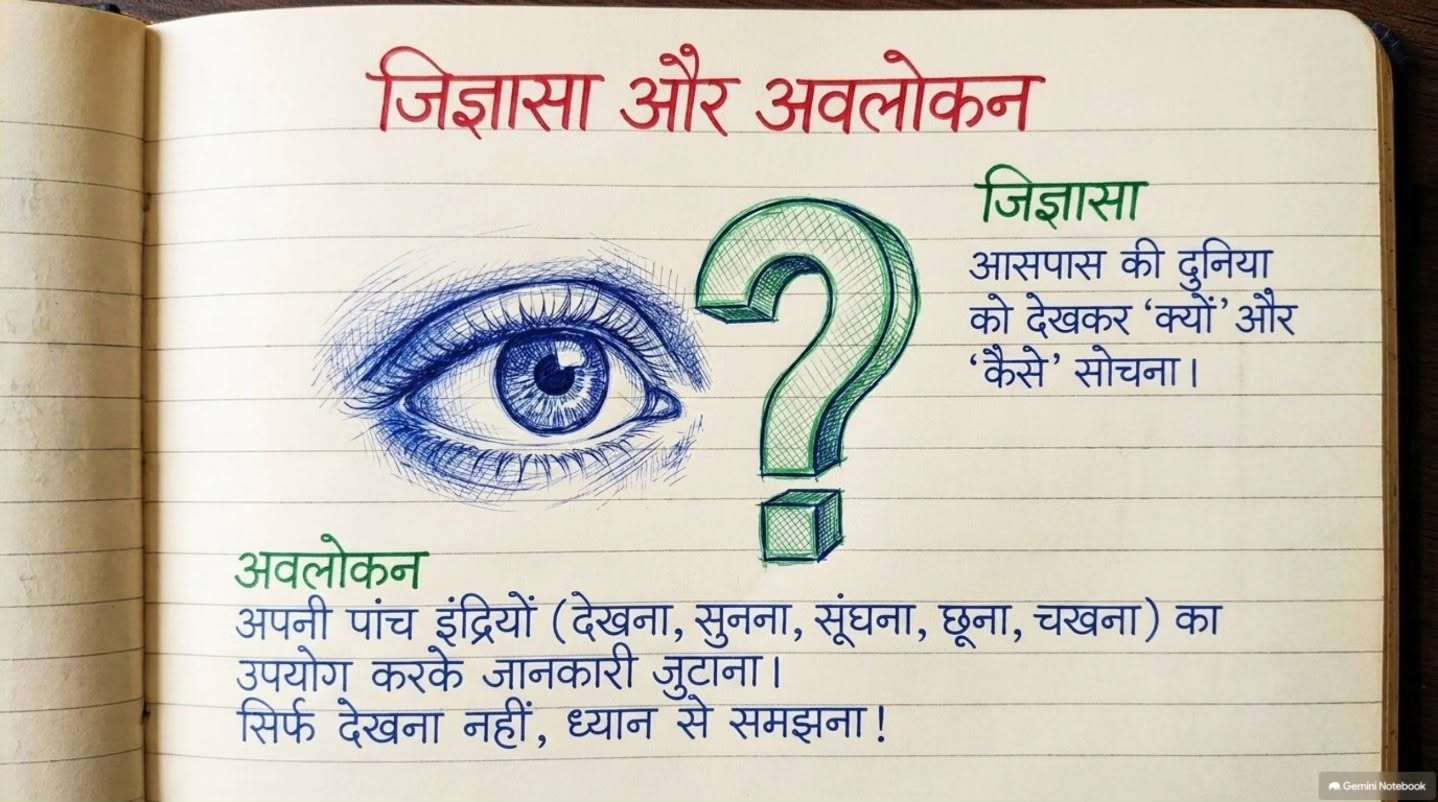 जिज्ञासा और अवलोकन
जिज्ञासा
आसपास की दुनिया
को देखकर ‘क्यों’ और
‘कैसे’ सोचना।
अवलोकन
अपनी पांच इंद्रियों (देखना, सुनना, सूंघना, छूना, चखना) का
उपयोग करके जानकारी जुटाना।
सिर्फ देखना नहीं, ध्यान से समझना!
Gemini Notebook